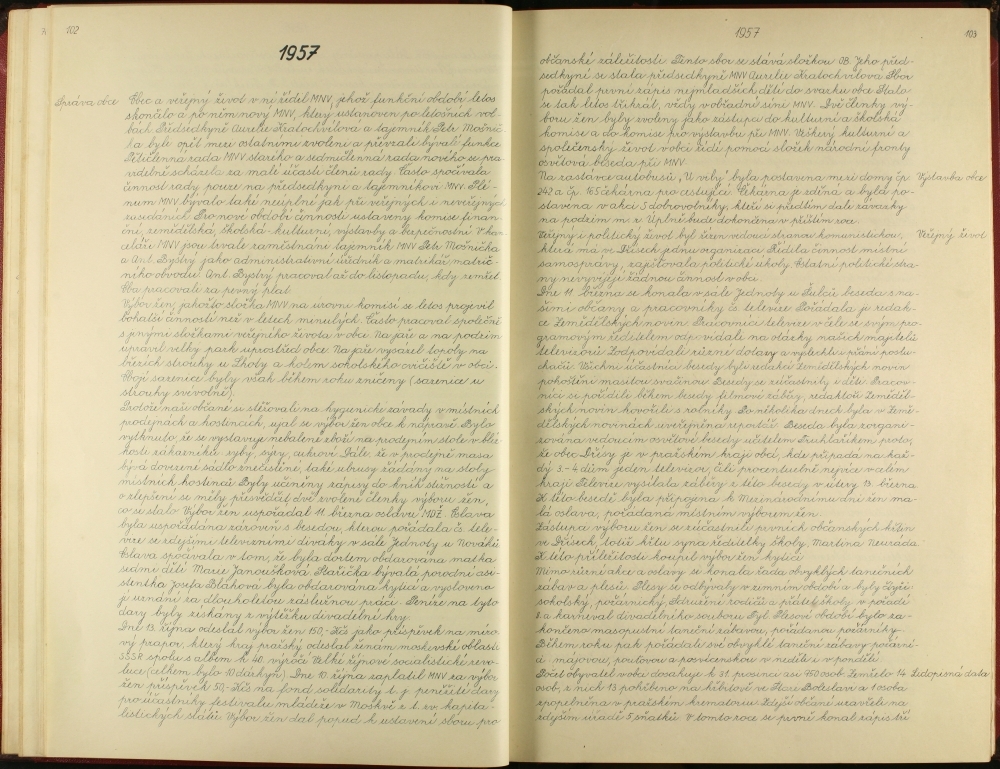 102
1957
Správa obce
Obec a veřejný život v ní řídil MNV, jehož funkční období letos
skončilo a po něm nový MNV, který ustanoven po letošních vol-
bách. Předsedkyně Aurelie Kratochvílová a tajemník Petr Mošnič-
ka byli opět mezi ostatními zvoleni a převzali bývalé funkce.
Pětičlenná rada MNV starého a sedmičlenná rada nového se pra-
videlně scházela za malé účasti členů rady. Často spočívala
činnost rady pouze na předsedkyni a tajemníkovi MNV. Plé-
num MNV bývalo také neúplné jak při veřejných i neveřejných
zasedáních. Pro nové období činnosti ustaveny komise finan-
ční, zemědělská, školská-kulturní, výstavby a bezpečnostní. V kan-
celáři MNV jsou trvale zaměstnáni tajemník MNV Petr Mošnička
a Ant. Bystrý jako administrativní úředník a matrikář matrič-
ního obvodu. Ant. Bystrý pracoval až do listopadu, kdy zemřel.
Oba pracovali za pevný plat.
Výbor žen, jakožto složka MNV na úrovni komisí se letos projevil
bohatší činností než v letech minulých. Často pracoval společně
s jinými složkami veřejného života v obci. Na jaře a na podzim
upravil velký park uprostřed obce. Na jaře vysázel topoly na
březích strouhy u Lhoty a kolem sokolského cvičiště v obci.
Obojí sazenice byly však během roku zničeny (sazenice u
strouhy svévolně).
Protože naši občané si stěžovali na hygienické závady v místních
prodejnách a hostincích, ujal se výbor žen obce k nápravě. Bylo
vytknuto, že se vystavuje nebalené zboží na prodejním stole v blíz-
kosti zákazníků ryby, sýry, cukroví. Dále, že v prodejně masa
bývá dovezené sádlo znečistěné, také ubrusy žádány na stoly
místních hostinců. Byly učiněny zápisy do knih stížností a
o zlepšení se měly přesvědčit dvě zvolené členky výboru žen,
co si stalo. Výbor žen uspořádal 11. března oslavu MDŽ. Oslava
byla uspořádána zároveň s besedou, kterou pořádala čs. tele-
vize se zdejšími televizními diváky v sále Jednoty u Nováků.
Oslava spočívala v tom, že byla dortem obdarována matka
sedmi dětí Marie Janoušková. Stařička bývalá porodní asi-
stentka Josefa Bláhová byla obdarována kyticí a vyslovena
jí uznání za dlouholetou záslužnou práci. Peníze na tyto
dary byly získány z výtěžku divadelní hry.
Dne 13. října odeslal výbor žen 150,- Kčs jako příspěvek na míro-
vý prapor, který kraj pražský odeslal ženám moskevské oblasti
SSSR spolu s albem k 40. výročí Velké říjnové socialistické revo-
luce (celkem bylo 10 dárkyň). Dne 10. října zaplatil MNV za výbor
žen příspěvek 50,- Kčs na fond solidarity t. j. peněžité dary
pro účastníky festivalu mládeže v Moskvě z t. zv. kapita-
listických států. Výbor žen dal popud k ustavení sboru pro
1957
103
občanské záležitosti. Tento sbor se stává složkou OB. Jeho před-
sedkyní se stala předsedkyně MNV Aurelie Kratochvílová. Sbor
pořádal první zápis nejmladších dětí do svazku obce. Stalo
se tak letos třikrát, vždy v obřadní síni MNV. Dvě členky vý-
boru žen byly zvoleny jako zástupci do kulturní a školské
komise a do komise pro výstavbu při MNV. Veškerý kulturní a
společenský život v obci řídí pomocí složek národní fronty
osvětová beseda při MNV.
Na zastávce autobusů „U vrby“ byla postavena mezi domy čp.
242 a čp. 165 čekárna pro cestující. Čekárna je zděná a byla po-
stavena v akci 5 dobrovolníky, kteří si předtím dali závazky
na podzim m. r. Úplně bude dokončena v příštím roce.
Výstavba obce
Veřejný i politický život byl řízen vedoucí stranou komunistickou,
která má ve Dřísech jednu organizaci. Řídila činnost místní
samosprávy, zajišťovala politické úkoly. Ostatní politické stra-
ny nevyvíjejí žádnou činnost v obci.
Veřejný život
Dne 11. března se konala v sále Jednoty u Šulců beseda s na-
šimi občany a pracovníky čs. televize. Pořádala je redak-
ce Zemědělských novin. Pracovníci televize v čele se svým pro-
gramovým ředitelem odpovídali na otázky našich majitelů
televizorů. Zodpovídali různé dotazy a vyslechli přání poslu-
chačů. Všichni účastníci besedy byli redakcí Zemědělských novin
pohoštěni masitou svačinou. Besedy se zúčastnily i děti. Pracov-
níci se pořídili během besedy filmové záběry, redaktoři Zeměděl-
ských novin hovořili s rolníky. Po několika dnech byla v Země-
dělských novinách uveřejněna reportáž. Beseda byla zorgani-
zována vedoucím osvětové besedy učitelem Truhlářskem proto,
že obec Dřísy je v pražském kraji obcí, kde připadá na kaž-
dý 3.-4. dům jeden televizor, čili procentuelně nejvíce v celém
kraji. Televize vysílala záběry z této besedy v úterý 13. března.
K této besedě byla připojena k Mezinárodnímu dni žen ma-
lá oslava, pořádaná místním výborem žen.
Zástupci výboru žen se zúčastnili prvních občanských křtin
ve Dřísech, totiž křtu syna ředitelky školy, Martina Neurada.
K této příležitosti koupil výbor žen kytici.
Mimo různé akce a oslavy se konala řada obvyklých tanečních
zábav a plesů. Plesy se odbývaly v zimním období a byly čtyři:
sokolský, požárnický, Sdružení rodičů a přátel školy v pořadí
3. a karneval divadelního souboru Tyl. Plesové období bylo za-
končeno masopustní taneční zábavou, pořádanou požárníky.
Během roku pak pořádali své obvyklé taneční zábavy požární-
ci májovou, pouťovou a posvícenskou v neděli i v pondělí.
Počet obyvatel v obci dosahuje k 31. prosinci asi 950 osob. Zemřelo 14
osob, z nich 13 pohřbeno na hřbitově ve Staré Boleslavi a 1 osoba
zpopelněna v pražském krematoriu. Zdejší občané uzavřeli na
zdejším úřadě 5 sňatků. V tomto roce se první konal zápis tří
Lidopisná data